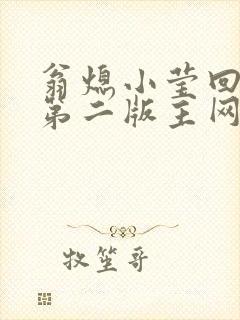 翁熄小莹回
第二版主网
牧笙哥